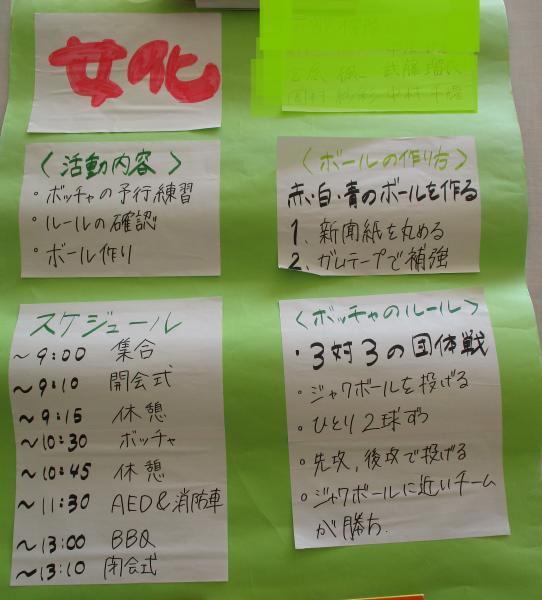 女化
〈活動内容〉
・ボッチャの予行練習
・ルールの確認
・ボール作り
〈ボールの作り方〉
赤・白・青のボールを作る
1、新聞紙を丸める
2、ガムテープで補強
スケジュール
～9:00 集合
～9:10 開会式
～9:15 休憩
～10:30 ボッチャ
～10:45 休憩
～11:30 AED&消防車
～13:00 BBQ
～13:10 閉会式
〈ボッチャのルール〉
・3対3の団体戦
・ジャックボールを投げる
・ひとり2球ずつ
・先攻、後攻で投げる
・ジャックボールに近いチーム
が勝ち.